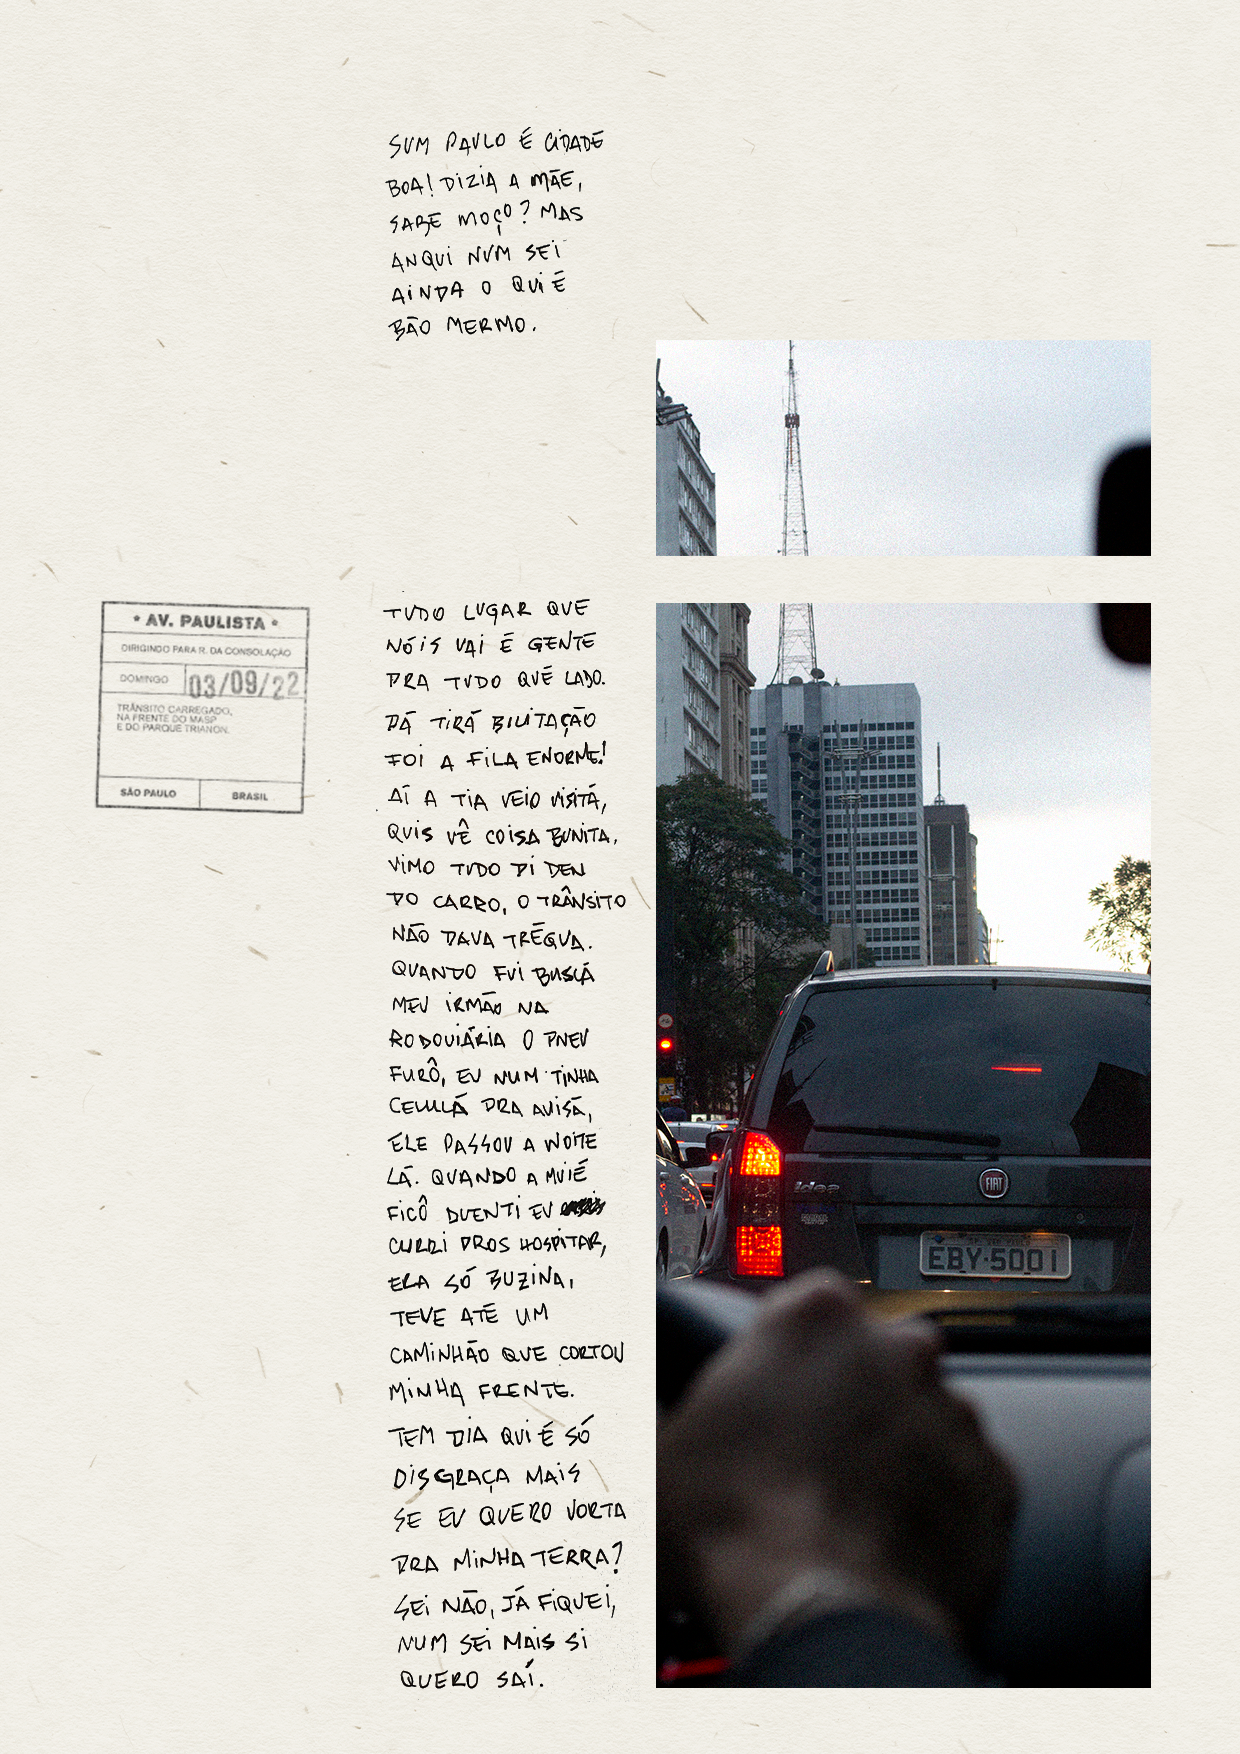 SUM PAULO É CIDADE
BOA! DIZIA A MÃE,
SABE MOÇO? MAS
ANQUI NUM SEI
AINDA O QUI É
BÃO MERMO.
• AV. PAULISTA •
DIRIGINDO PARA R. DA CONSOLAÇÃO
DOMINGO 03/09/22
TRÂNSITO CARREGADO,
NA FRENTE DO MASP
E DO PARQUE TRIANON.
SÃO PAULO BRASIL
TUDO LUGAR QUE
NÓIS VAI É GENTE
PRA TUDO QUÉ LADO.
PÁ TIRÁ BILITAÇÃO
FOI A FILA ENORME!
AÍ A TIA VEIO VISITÁ,
QUIS VÊ COISA BUNITA,
VIMO TUDO DI DEN
DO CARRO, O TRÂNSITO
NÃO DAVA TRÉGUA.
QUANDO FUI BUSCÁ
MEU IRMÃO NA
RODOVIÁRIA O PNEU
FURÔ, EU NUM TINHA
CELULÁ PRA AVISÁ,
ELE PASSOU A NOITE
LÁ. QUANDO A MUIÉ
FICÔ DUENTI EU
CURRI PROS HOSPITAR,
ERA SÓ BUZINA,
TEVE ATÉ UM
CAMINHÃO QUE CORTOU
MINHA FRENTE.
TEM DIA QUI É SÓ
DISGRAÇA MAIS
SE EU QUERO VORTA
PRA MINHA TERRA?
SEI NÃO, JÁ FIQUEI,
NUM SEI MAIS SI
QUERO SAÍ.
Idea
FIAT
EBY-5001